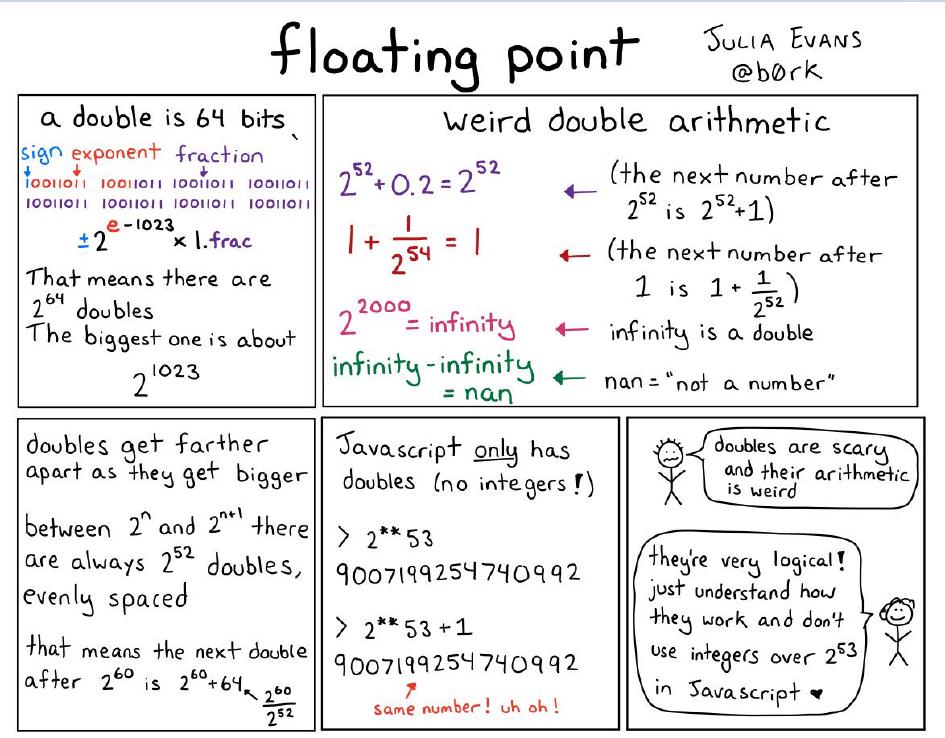 floating point
JULIA EVANS
@b0rk
a double is 64 bits
sign exponent fraction
10011011 10011011 10011011 10011011
10011011 10011011 10011011 10011011
±2^e-1023 × 1.frac
That means there are
2^64 doubles
The biggest one is about
2^1023
weird double arithmetic
2^52 + 0.2 = 2^52
(the next number after
2^52 is 2^52+1)
1 + 1/2^54 = 1
(the next number after
1 is 1 + 1/2^52)
2^2000 = infinity
infinity is a double
infinity - infinity
= nan
nan = "not a number"
doubles get farther
apart as they get bigger
between 2^n and 2^n+1 there
are always 2^52 doubles,
evenly spaced
that means the next double
after 2^60 is 2^60+64
2^60/2^52
Javascript only has
doubles (no integers!)
> 2**53
9007199254740992
> 2**53 + 1
9007199254740992
same number! uh oh!
doubles are scary
and their arithmetic
is weird
they're very logical!
just understand how
they work and don't
use integers over 2^53
in Javascript ♥